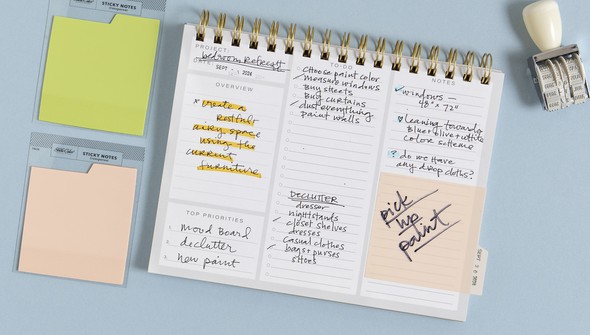 STICKY NOTES
STICKY NOTES
PROJECT:
bedroom Refresh
DATE:
SEPT 1 2024
OVERVIEW
* create a
restful
airy space
using the
current
furniture
TOP PRIORITIES
mood Board
declutter
new paint
TO-DO
Choose paint color
✓ measure windows
Buy sheets
Buy curtains
✓ dust everything
paint walls
DECLUTTER
dresser
nightstands
✓ closet shelves
dresses
casual clothes
✓ bags + purses
shoes
NOTES
✓ windows —
48" x 72"
♥ leaning towards
Blue + olive + white
color scheme
? do we have
any drop cloths?
pick
up
paint